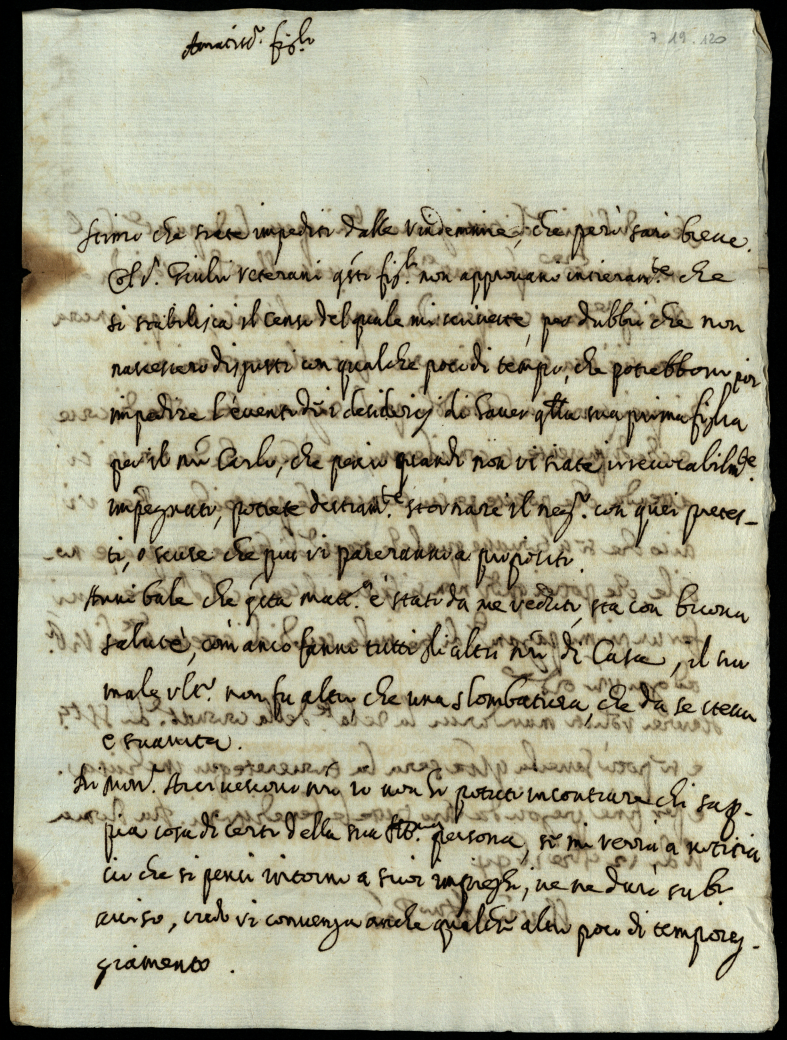 Amatiss.º figlo
7.19.120
Stimo che siate impediti dalle vindemmie, che però sarò breve.
Al S.r Giulio Veterani q.sti fig.li non approvano intieram.te che
si stabilisca il censo del quale mi scrivete, per dubbio che non
nascessero disgusti con qualche poco di tempo, che potrebbono poi
impedire l'evento di desiderij di haver q.lla sua prima figlia
per il n.ro Carlo, che però quando non vi siate irrevocabilm.te
impegnato, potete destram.te stornare il neg.º con quei pretes-
ti, o scuse che più vi pareranno a proposito.
Annibale che q.sta matt.a è stato da me veduto, sta con buona
salute, com'anco fanno tutti gli altri n.ri di Casa, il suo
male ult.º non fu altro che una slombatura, che da se stessa
è svanita.
Di Mon.r Arcivescovo n.ro io non ho potuto incontrare chi sap-
pia cosa di certo della sua persona, se mi verrà a notitia
ciò che si pensi intorno a suoi impieghi, ve ne darò subito
aviso, credo vi convenga anche qualche altro poco di temporeg-
giamento.